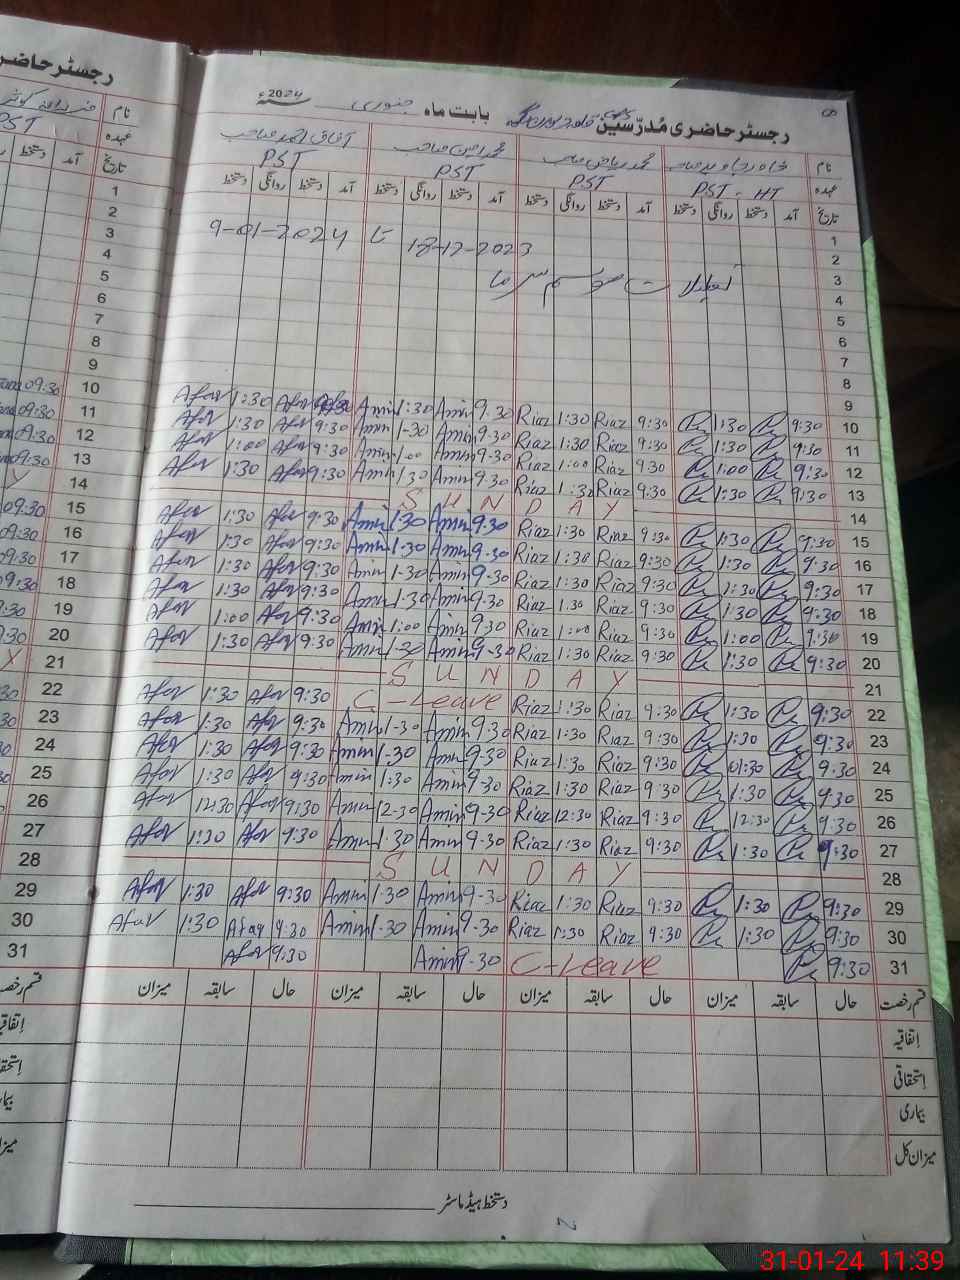 رجسٹر حاضری مُدرّسین بابت ماہ جنوری 2024ء
نام محمد ریاض صاحب محمد امین صاحب آفاق احمد صاحب
عہدہ PST - HT PST PST PST
تاریخ آمد دستخط روانگی دستخط آمد دستخط روانگی دستخط آمد دستخط روانگی دستخط آمد دستخط روانگی دستخط
1
2
18-12-2023 تا 9-01-2024
3
تعطیلات موسم سرما
4
5
6
7
8
9
10 9:30 1:30 9:30 Riaz 1:30 Riaz 9:30 Amin 1:30 Amin 9:30 Afaq 1:30 Afaq
11 9:30 1:30 9:30 Riaz 1:30 Riaz 9:30 Amin 1-30 Amin 9:30 Afaq 1:30 Afaq
12 9:30 1:00 9:30 Riaz 1:00 Riaz 9:30 Amin 1:00 Amin 9:30 Afaq 1:00 Afaq
13 9:30 1:30 9:30 Riaz 1:30 Riaz 9:30 Amin 1:30 Amin 9:30 Afaq 1:30 Afaq
14 SUNDAY
15 9:30 1:30 9:30 Riaz 1:30 Riaz 9:30 Amin 1:30 Amin 9:30 Afaq 1:30 Afaq
16 9:30 1:30 9:30 Riaz 1:30 Riaz 9:30 Amin 1-30 Amin 9:30 Afaq 1:30 Afaq
17 9:30 1:30 9:30 Riaz 1:30 Riaz 9-30 Amin 1-30 Amin 9:30 Afaq 1:30 Afaq
18 9:30 1:30 9:30 Riaz 1:30 Riaz 9:30 Amin 1-30 Amin 9:30 Afaq 1:30 Afaq
19 9:30 1:00 9:30 Riaz 1:00 Riaz 9:30 Amin 1:00 Amin 9:30 Afaq 1:00 Afaq
20 9:30 1:30 9:30 Riaz 1:30 Riaz 9-30 Amin 1-30 Amin 9:30 Afaq 1:30 Afaq
21 SUNDAY
22 9:30 1:30 9:30 Riaz 1:30 Riaz C-Leave 9:30 Afaq 1:30 Afaq
23 9:30 1:30 9:30 Riaz 1:30 Riaz 9:30 Amin 1-30 Amin 9:30 Afaq 1:30 Afaq
24 9:30 01:30 9:30 Riaz 1:30 Riaz 9-30 Amin 1:30 Amin 9:30 Afaq 1:30 Afaq
25 9:30 1:30 9:30 Riaz 1:30 Riaz 9-30 Amin 1:30 Amin 9:30 Afaq 1:30 Afaq
26 9:30 12:30 9:30 Riaz 12:30 Riaz 9-30 Amin 12-30 Amin 9:30 Afaq 12:30 Afaq
27 9:30 1:30 9:30 Riaz 1:30 Riaz 9:30 Amin 1:30 Amin 9:30 Afaq 1:30 Afaq
28 SUNDAY
29 9:30 1:30 9:30 Riaz 1:30 Riaz 9-30 Amin 1-30 Amin 9:30 Afaq 1:30 Afaq
30 9:30 1:30 9:30 Riaz 1:30 Riaz 9-30 Amin 1-30 Amin 9:30 Afaq 1:30 Afaq
31 9:30 C-Leave 9-30 Amin 9:30 Afaq
قسم رخصت حال سابقہ میزان حال سابقہ میزان حال سابقہ میزان حال سابقہ میزان
اِتفاقیہ
اِستحقاقی
بیماری
میزان کل
دستخط ہیڈ ماسٹر
رجسٹر حاضری
نام
عہدہ PST
تاریخ آمد دستخط
1
2
3
4
5
6
7
8
9
10 09:30
11 09:30
12 09:30
13 09:30
14
15 09:30
16 09:30
17 09:30
18 09:30
19 9:30
20 9:30
21
22
23
24
25
26
27
28
29
30
31
31-01-24 11:39